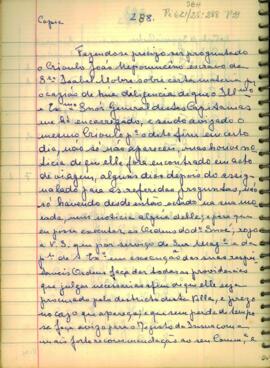 Copia
288.
Fazendose precizo ser proguntado
o Crioulo João Nepomuceno escravo de
D.ª Izabel Mo sobre certa materia p.r
ocazião de hũa diligencia de que o Ill.mo
e Ex.mo Snr General destas Capitanias
me há encarregado, e sendo avizado o
mesmo Crioulo p.ª este fim em certo
dia, não só não apareceo, mas houve no-
ticia de que elle fora encontrado em acto
de viagem, alguns dias depois do assig-
nalado para as referidas proguntas, não
só havendo desde então vindo na sua mo
rada, mas noticia alguã delle; e p.ª que
eu possa executar as Ordens do d.º Snor, rogo
a V. S. que por serviço de Sua Mag.e e da
p.te de S. Ex.ª em execução das suas respei
taveis Ordens faça dar todas as providencias
que julgar necessarias afim de que elle seja
procurado pelo destricto desta Villa, e prezo
no cazo que apareça; e que sem perda de tempo
se faça avizo para o Registo da com a
mais forte recomendação ao seu Comm.e, e